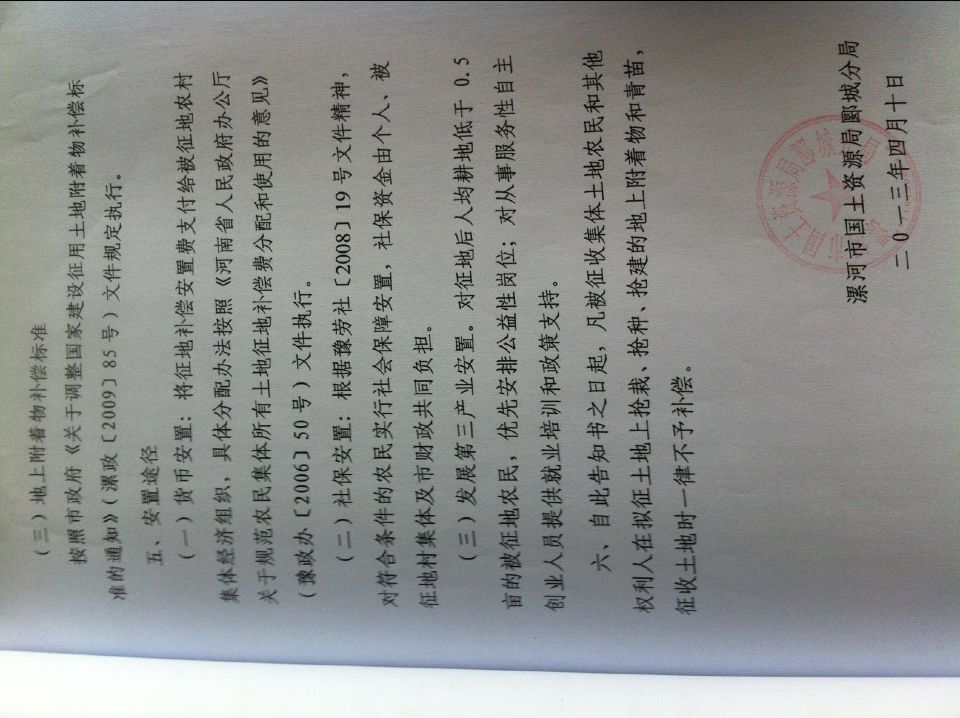 （三）地上附着物补偿标准
按照市政府《关于调整国家建设征用土地附着物补偿标
准的通知》（漯政〔2009〕85号）文件规定执行。
五、安置途径
（一）货币安置：将征地补偿安置费支付给被征地农村
集体经济组织，具体分配办法按照《河南省人民政府办公厅
关于规范农民集体所有土地征地补偿费分配和使用的意见》
（豫政办〔2006〕50号）文件执行。
（二）社保安置：根据豫劳社〔2008〕19号文件精神，
对符合条件的农民实行社会保障安置，社保资金由个人、被
征地村集体及市财政共同负担。
（三）发展第三产业安置。对征地后人均耕地低于 0.5
亩的被征地农民，优先安排公益性岗位；对从事服务性自主
创业人员提供就业培训和政策支持。
六、自此告知书之日起，凡被征收集体土地农民和其他
权利人在拟征土地上抢栽、抢种、抢建的地上附着物和青苗，
征收土地时一律不予补偿。
漯河市国土资源局郾城分局
二〇一三年四月十日